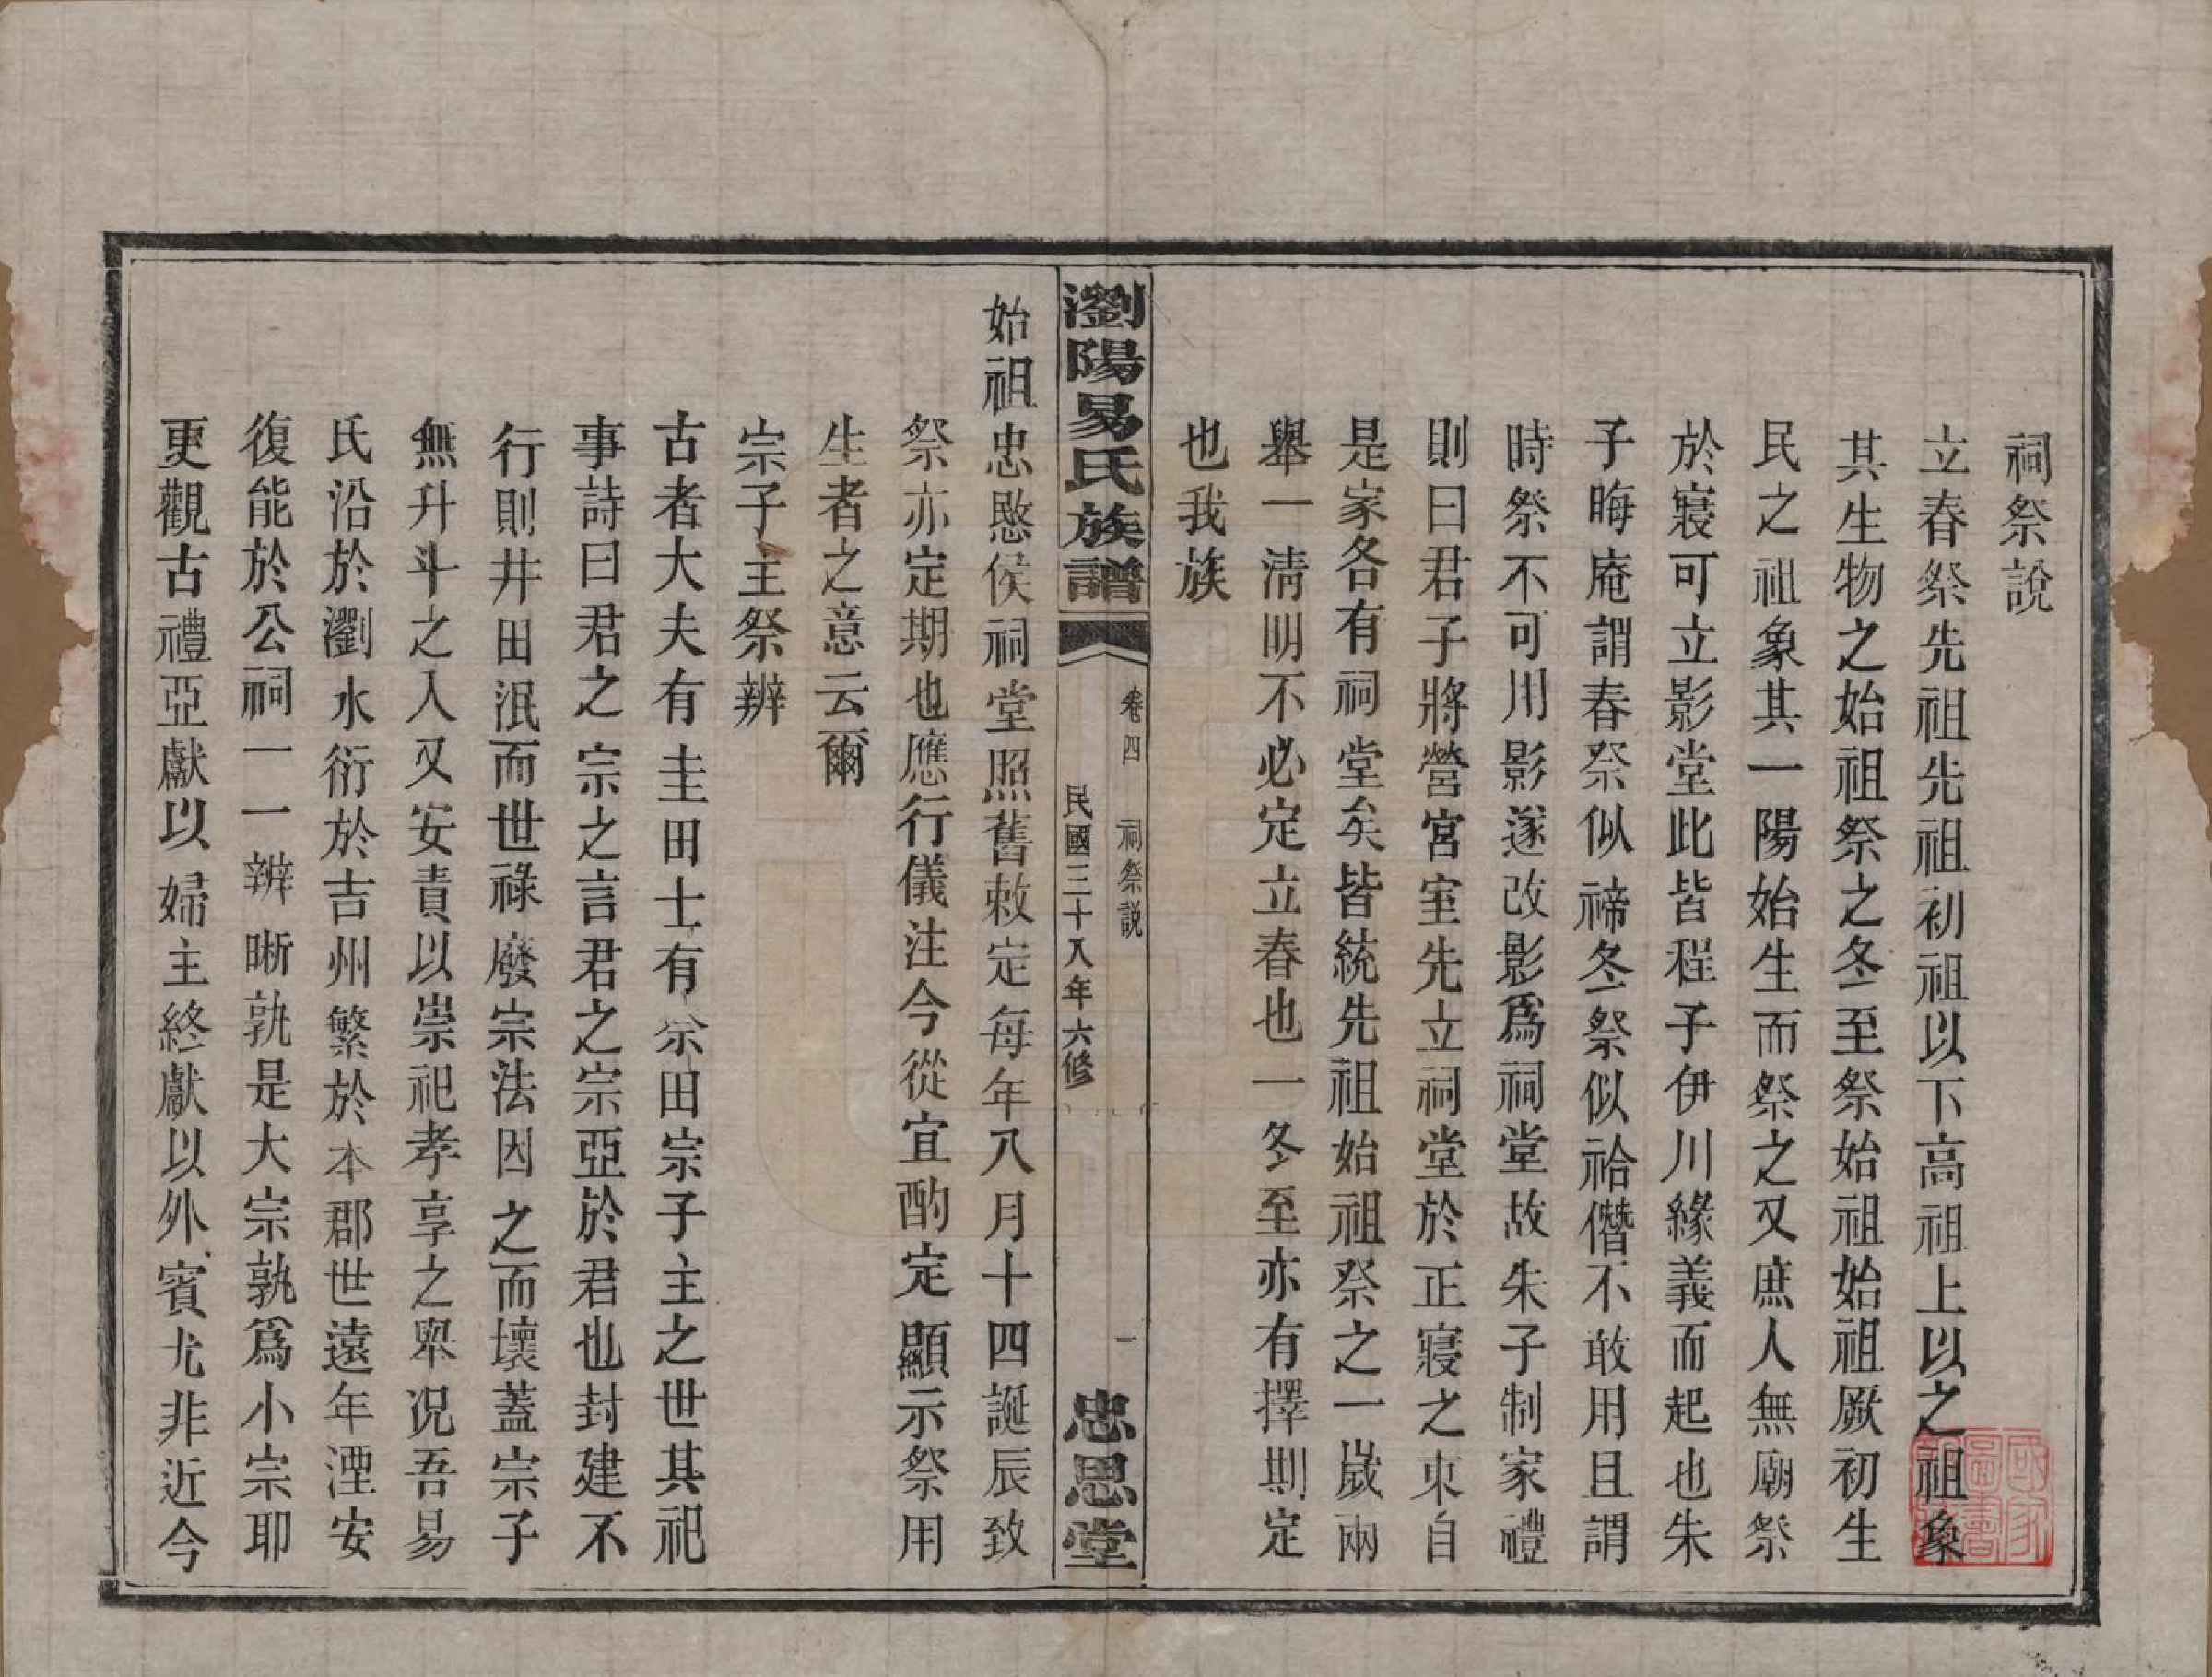 祠祭說
立春祭先祖先祖初祖以下高祖上以之祖象
其生物之始祖祭之冬至祭始祖始祖厥初生
民之祖象其一陽始生而祭之又庶人無廟祭
於寢可立影堂此皆程子伊川緣義而起也朱
子晦庵謂春祭似禘冬祭似祫僭不敢用且謂
時祭不可用影遂改影爲祠堂故朱子制家禮
則曰君子將營宮室先立祠堂於正寢之東自
是家各有祠堂矣皆統先祖始祖祭之一歲兩
舉一淸明不必定立春也一冬至亦有擇期定
也我族
瀏陽易氏族譜
卷四 祠祭説 一
民國三十八年六修
忠思堂
始祖忠愍侯祠堂照舊敕定每年八月十四誕辰致
祭亦定期也應行儀注今從宜酌定顯示祭用
生者之意云爾
宗子主祭辨
古者大夫有圭田士有祭田宗子主之世其祀
事詩曰君之宗之言君之宗亞於君也封建不
行則井田泯而世祿廢宗法因之而壞蓋宗子
無升斗之入又安責以崇祀孝享之舉况吾易
氏沿於瀏水衍於吉州繁於本郡世遠年湮安
復能於公祠一一辨晰孰是大宗孰爲小宗耶
更觀古禮亞獻以婦主終獻以外賓尤非近今